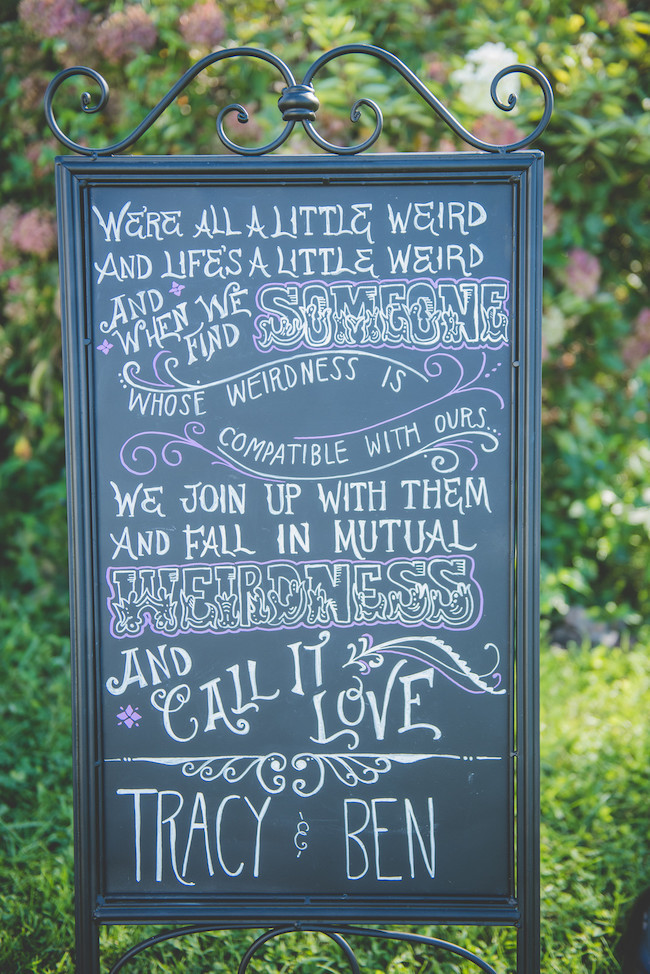 WE'RE ALL A LITTLE WEIRD
AND LIFE'S A LITTLE WEIRD
AND WHEN WE FIND SOMEONE
WHOSE WEIRDNESS IS
COMPATIBLE WITH OURS...
WE JOIN UP WITH THEM
AND FALL IN MUTUAL
WEIRDNESS
AND CALL IT LOVE
TRACY & BEN